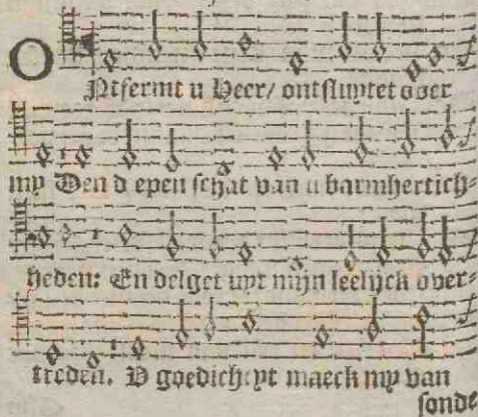 ONtfermt u Heer/ ontsluytet over
my Den diepen schat van u barmhertich-
heden: En delget uyt mijn leelijck over-
treden. V goedicheyt maeck my van
sonde